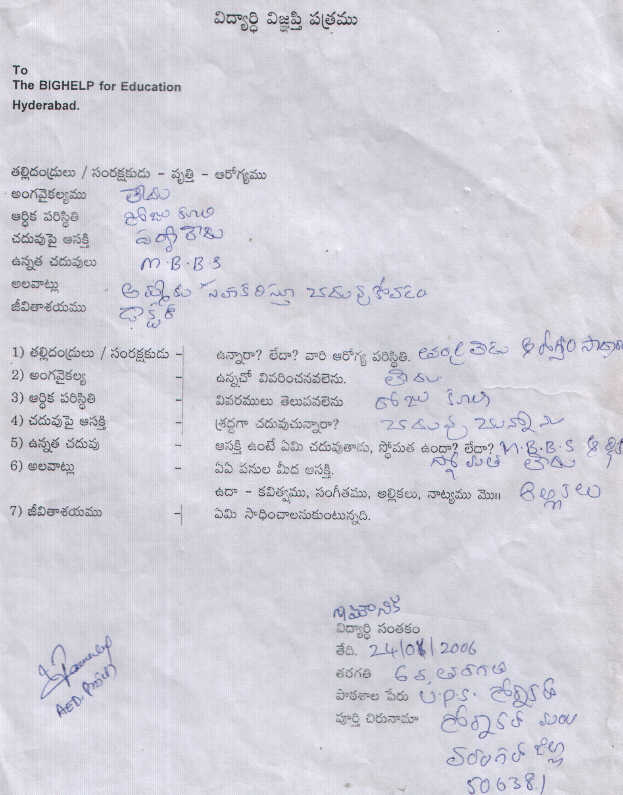 విద్యార్ధి విజ్ఞప్తి పత్రము
To
The BIGHELP for Education
Hyderabad.
తల్లిదండ్రులు / సంరక్షకుడు - వృత్తి - ఆరోగ్యము
అంగవైకల్యము లేదు
ఆర్ధిక పరిస్థితి రోజు కూలి
చదువుపై ఆసక్తి
ఉన్నత చదువులు M.B.B.S
అలవాట్లు అమ్మకు సహకరిస్తూ చదువుకోవడం
జీవితాశయము డాక్టర్
1) తల్లిదండ్రులు / సంరక్షకుడు - ఉన్నారా? లేదా? వారి ఆరోగ్య పరిస్థితి. తండ్రి లేడు ఆరోగ్యం
2) అంగవైకల్య - ఉన్నచో వివరించనవలెను. లేదు
3) ఆర్ధిక పరిస్థితి - వివరములు తెలుపవలెను రోజు కూలి
4) చదువుపై ఆసక్తి - శ్రద్ధగా చదువుచున్నారా? చదువుచున్నాను
5) ఉన్నత చదువు - ఆసక్తి ఉంటే ఏమి చదువుతారు, స్థోమత ఉందా? లేదా? M.B.B.S
స్థోమత లేదు
6) అలవాట్లు - ఏఏ పనుల మీద ఆసక్తి.
ఉదా - కవిత్వము, సంగీతము, అల్లికలు, నాట్యము మొ॥ అల్లికలు
7) జీవితాశయము - ఏమి సాధించాలనుకుంటున్నది.
మౌనిక
విద్యార్ధి సంతకం
తేది. 24/08/2006
తరగతి 6వ తరగతి
పాఠశాల పేరు U.P.S.
పూర్తి చిరునామా
వరంగల్ జిల్లా
506381